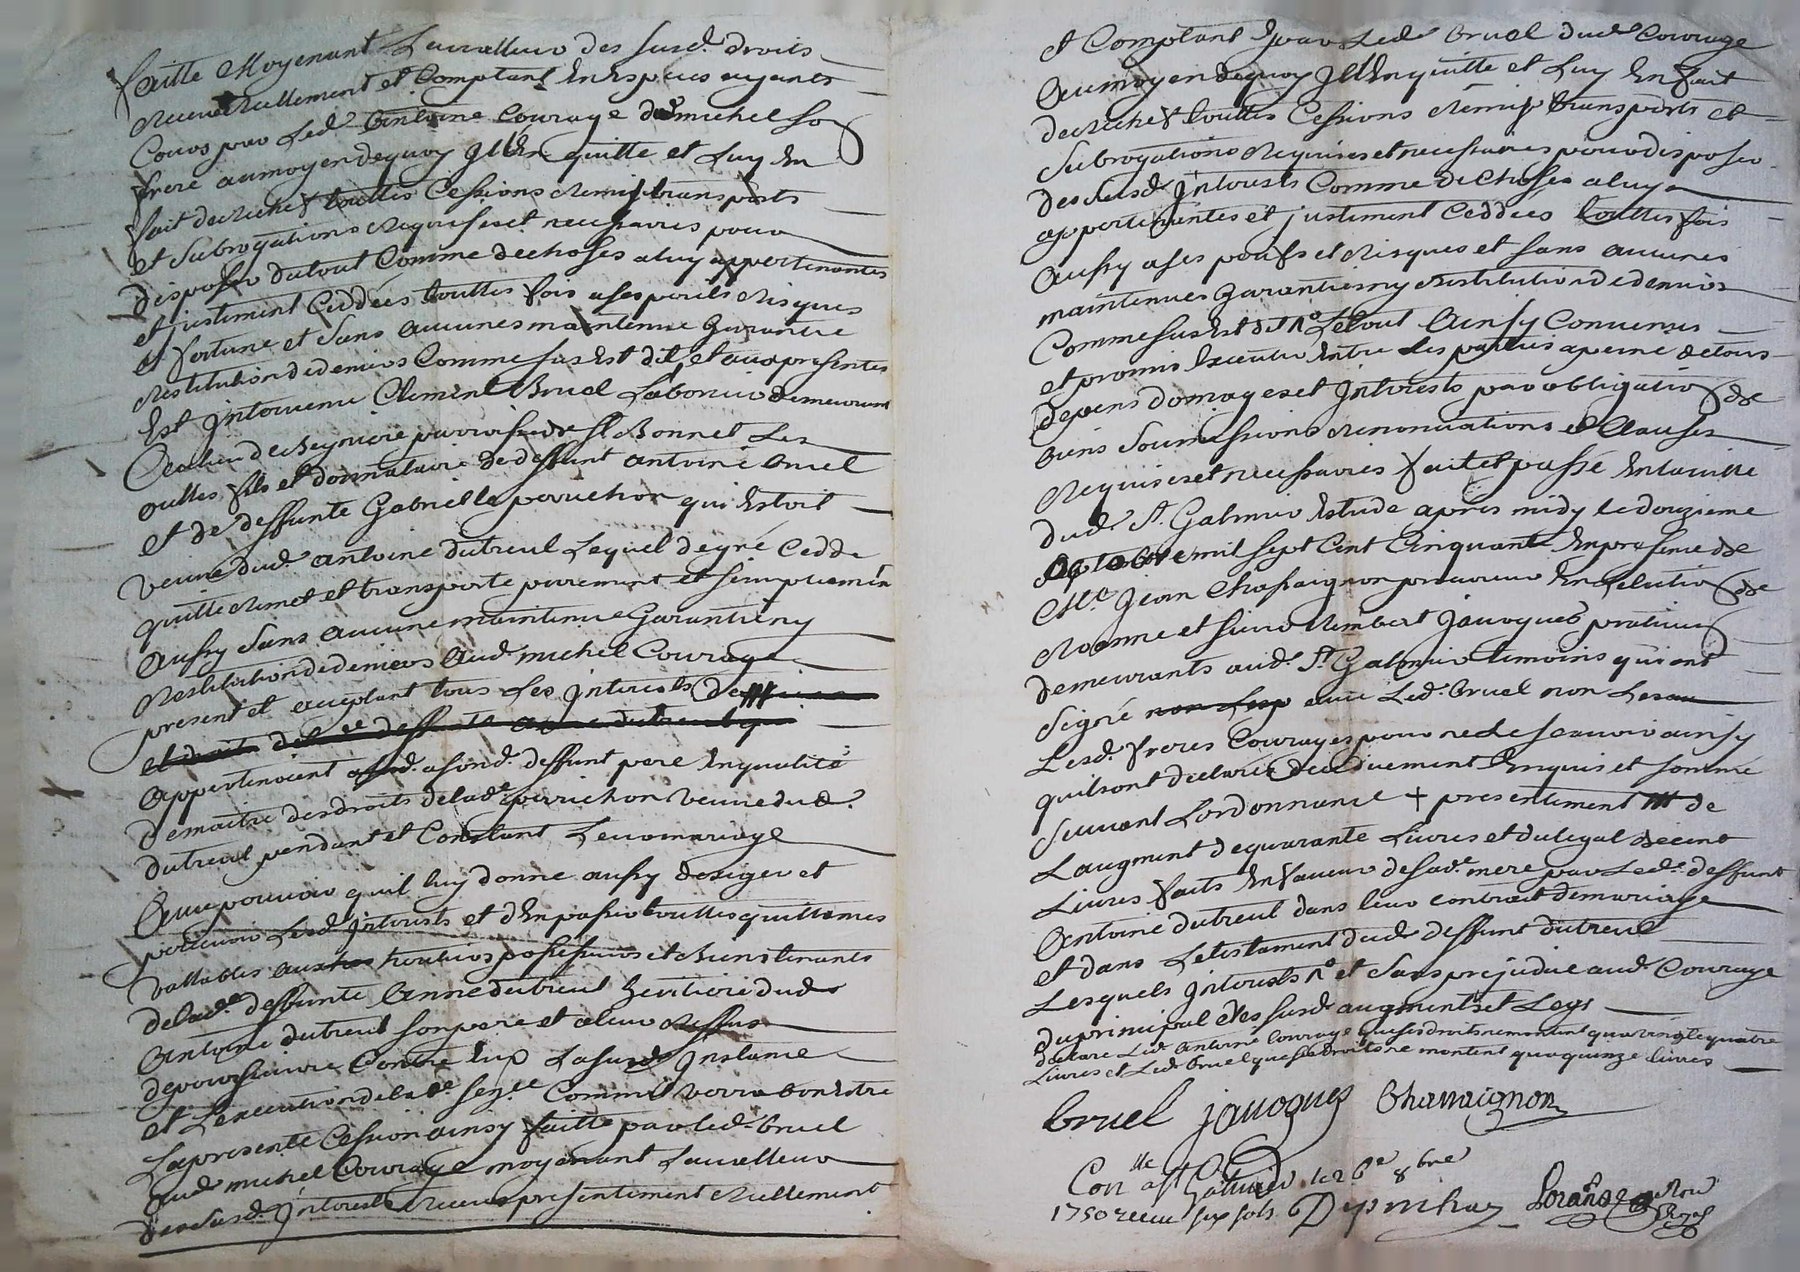 faitte Moyenant La valleur des susd. droits
receue reellement et Comptant En Especes ayants
Cours par Led. Antoine Courage dud. michel so
frere au moyen dequoy Il l'En quitte et Luy En
fait de Riche & touttes Cessions Remis transports
et subrogations Requises et necessaires pour
disposer dutout Comme dechoses a luy appertenantes
et justement Ceddées touttes fois a ses perils Risques
et fortune et sans aucunes maintenue garantie
Restitution de deniers Comme sus Est dit, et aux presentes
Est Intervenu Clement Bruel Laboureur demeurant
Au lieu de Reyniere parroisse de St Bonnet Les
oulles, fils et donnataire de deffunt antoine bruel
et de deffunte Gabrielle perrichon qui Estoit
veuve dud. antoine dutreul Lequel de gré Cedde
quitte Remet et transporte purement et simplemen
Aussy sans aucune maintenue Garantie ny
Restitution de deniers Aud. michel Courage
present et acceptant tous Les Interests de
appertenoient a sond. deffunt pere En qualité
de maitre des droits de lad. perrichon veuve dud.
dutreul pendant et Constant Leur mariage
Avec pouvoir qu'il luy donne aussy dexiger et
percevoir Lesd. Interests et d'En passer touttes quittances
vallables aux heritiers possesseurs et Biens tenants
de lad. deffunte Anne dutreul heritiere dud.
Antoine dutreul son pere et a leur Reffus
de poursuivre Contre Eux La susd. Instance
et L'execution de la de. sence. Comme verra bon Estre
La presente Cession ainsy faitte par led. bruel
Aud. michel Courage moyenant La valleur
des susd. Interests Receue presentement Reellement
et Comptant par Led. bruel dud. Courage
Au moyen dequoy Il l'En quitte et Luy En fait
de Riche & touttes Cessions Remis transports et
subrogations Requises et necessaires pour disposer
des susd. Interests Comme de Choses a luy
appertenantes et justement Ceddées touttes fois
Aussy a ses perils et Risques et sans aucunes
maintenues garanties ny Restitution de deniers
Comme sus Est dit Le tout Ainsy Convenus
et promis Executer Entre Les parties a peine de tous
depens domages et Interests par obligatio de
biens soumissions Renonciations et Clauses
Requises et necessaires fait et passé En la ville
dud. St. Galmier Estude apres midy le douzieme
octobre mil sept Cent Cinquante En presence de
Me Jean Chassaignon procureur En Lelectio de
Roanne et sieur Rimbert Javogues praticien
demeurants aud. St. Galmier temoins qui ont
signé avec Led. bruel non Les
Lesd. freres Courages pour ne le scavoir ainsy
quils ont declaré de ce duement Enquis et sommé
suivant Lordonnance + presentement de
Laugment de quarante Livres et du legat de cent
Livres faits En faveur de sad. mere par Led. deffunt
Antoine dutreul dans leur contrat de mariage
et dans Le testament dud. deffunt dutreul
Lesquels Interests et sans prejudice aud. Courage
du principal des susd. augments et Legs
declare Led. Antoine Courage que ses droits ne montent qua vingt quatre
Livres et Led. bruel que ses droits ne montent qua quinze livres
bruel javogues Chassaignon
Conlle a St Galmier le 26e 8bre
1750 receu six sols